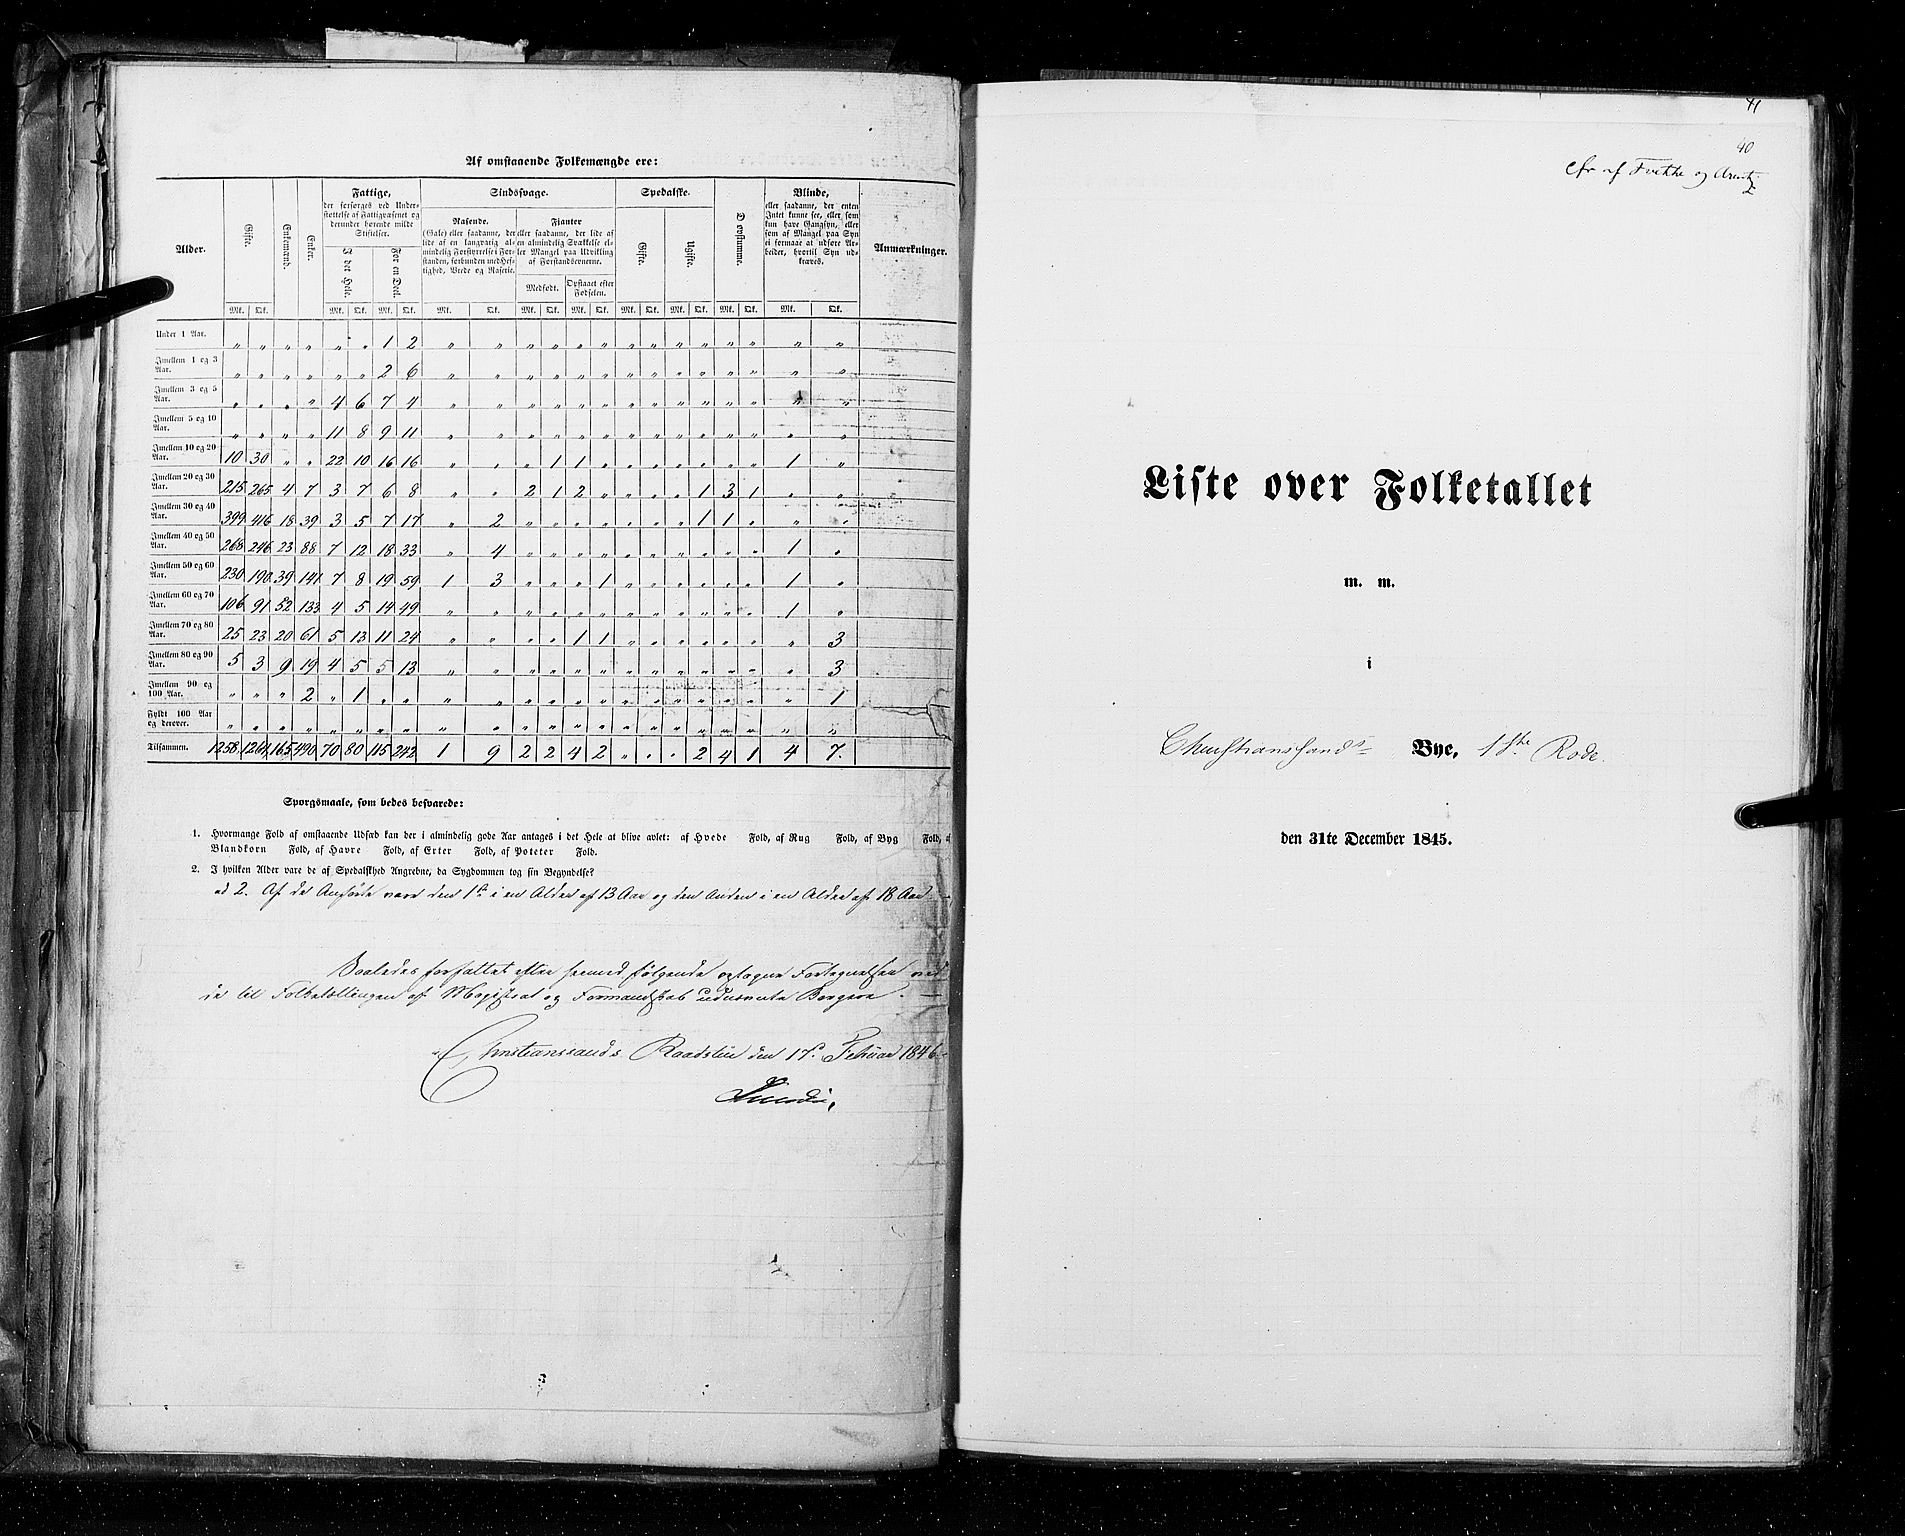 Af omstaaende Folkemængde ere:
Alder. Gifte. Enkemænd. Enker. Fattige, der forsørges ved Understøttelse af Fattigvæsenet og derunder hørende milde Stiftelser. Sindssvage. Spedalske. Døvstumme. Blinde, eller saadanne, der enten Intet kunne see, eller som kun have Gangsyn, eller som af Mangel paa Syn ei formaae at udføre Arbeider, hvortil Syn udkræves. Anmærkninger.
I det Hele. For en Deel. Rasende. (Gale) eller saadanne, der lide af en langvarig almindelig Forstyrrelse i Forstanden, forbunden med Heftighed, Vrede og Raserie. Fjanter eller saadanne, der lide af en almindelig Svækkelse eller Mangel paa Udvikling af Forstandsevnerne. Gifte. Ugifte.
Medfødt. Opstaaet efter Fødselen.
Mk. Qk. Mk. Qk. Mk. Qk. Mk. Qk. Mk. Qk. Mk. Qk. Mk. Qk. Mk. Qk. Mk. Qk. Mk. Qk.
Under 1 Aar. „ „ „ „ „ „ 1 2 „ „ „ „ „ „ „ „ „ „ „ „ „ „
Imellem 1 og 3 Aar. „ „ „ „ „ „ 2 6 „ „ „ „ „ „ „ „ „ „ „ „ „ „
Imellem 3 og 5 Aar. „ „ „ „ 4 6 7 4 „ „ „ „ „ „ „ „ „ „ „ „ „ „
Imellem 5 og 10 Aar. „ „ „ „ 11 8 9 11 „ „ „ „ „ „ „ „ „ „ „ „ „ „
Imellem 10 og 20 Aar. 10 30 „ „ 22 10 16 16 „ „ „ 1 1 „ „ „ „ „ „ „ 1 „
Imellem 20 og 30 Aar. 215 265 4 7 3 7 6 8 „ „ 2 1 2 „ „ „ „ 1 3 1 „ „
Imellem 30 og 40 Aar. 399 416 18 39 3 5 7 17 „ 2 „ „ „ „ „ „ „ 1 1 „ „ „
Imellem 40 og 50 Aar. 268 246 23 88 7 12 18 33 „ 4 „ „ „ „ „ „ „ „ „ „ 1 „
Imellem 50 og 60 Aar. 230 190 39 141 7 8 19 59 1 3 „ „ „ 1 „ „ „ „ „ „ 1 „
Imellem 60 og 70 Aar. 106 91 52 133 4 5 14 49 „ „ „ „ „ „ „ „ „ „ „ „ 1 „
Imellem 70 og 80 Aar. 25 23 20 61 5 13 11 24 „ „ „ „ 1 1 „ „ „ „ „ „ „ 3
Imellem 80 og 90 Aar. 5 3 9 19 4 5 5 13 „ „ „ „ „ „ „ „ „ „ „ „ „ 3
Imellem 90 og 100 Aar. „ „ „ 2 „ 1 „ „ „ „ „ „ „ „ „ „ „ „ „ „ „ 1
Fyldt 100 Aar og derover. „ „ „ „ „ „ „ „ „ „ „ „ „ „ „ „ „ „ „ „ „ „
Tilsammen. 1258 1264 165 490 70 80 115 242 1 9 2 2 4 2 „ „ „ 2 4 1 4 7.
Spørgsmaale, som bedes besvarede:
1. Hvormange Fold af omstaaende Udsæd kan der i almindelig gode Aar antages i det Hele at blive avlet: af Hvede Fold, af Rug Fold, af Byg Fold, af
Blandkorn Fold, af Havre Fold, af Erter Fold, af Poteter Fold.
2. I hvilken Alder vare de af Spedalskhed Angrebne, da Sygdommen tog sin Begyndelse?
ad 2. Af de Anførte var den 1ste i en Alder af 13 Aar og den Anden i en Alder af 18 Aar
Saaledes forfattet efter hermed følgende optagne Fortegnelser ved
de til Folketællingen af Magistrat og Formandskab udnævnte Borgere.
Christianssands Raadstue den 17de Februar 1846
41
40
Liste over Folketallet
m. m.
i
Christianssands Bye, 1ste Rode.
den 31te December 1845.